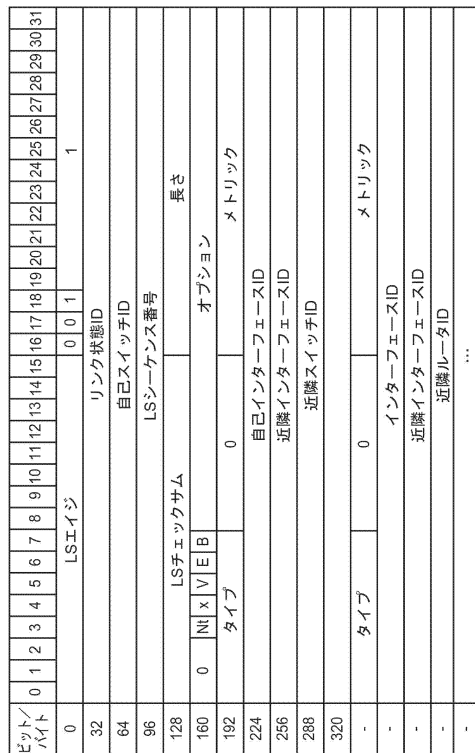 ビット/バイト 0 1 2 3 4 5 6 7 8 9 10 11 12 13 14 15 16 17 18 19 20 21 22 23 24 25 26 27 28 29 30 31
0 LSエイジ 0 0 1 1
32 リンク状態ID
64 自己スイッチID
96 LSシーケンス番号
128 LSチェックサム 長さ
160 0 Nt x V E B オプション
192 タイプ 0 メトリック
224 自己インターフェースID
256 近隣インターフェースID
288 近隣スイッチID
320 …
- タイプ 0 メトリック
- インターフェースID
- 近隣インターフェースID
- 近隣ルータID
- …